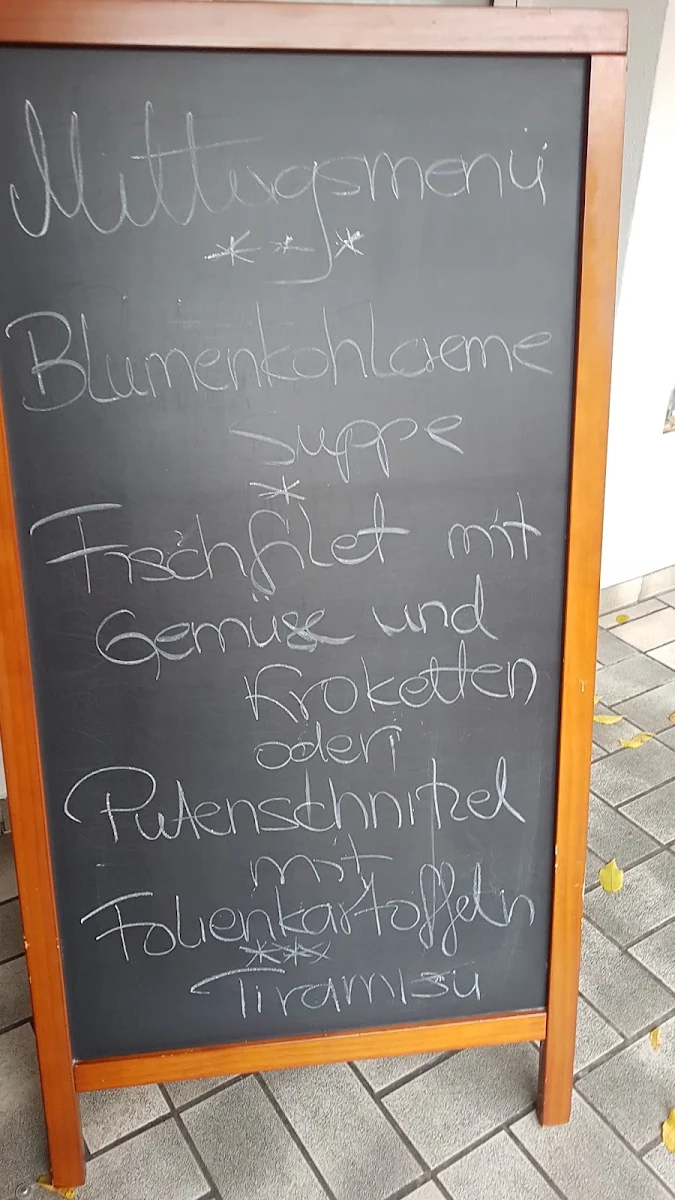 Mittagsmenü
* * *
Blumenkohlcreme
suppe
*
Fischfilet mit
Gemüse und
Kroketten
oder
Putenschnitzel
mit
Folienkartoffeln
***
Tiramisu